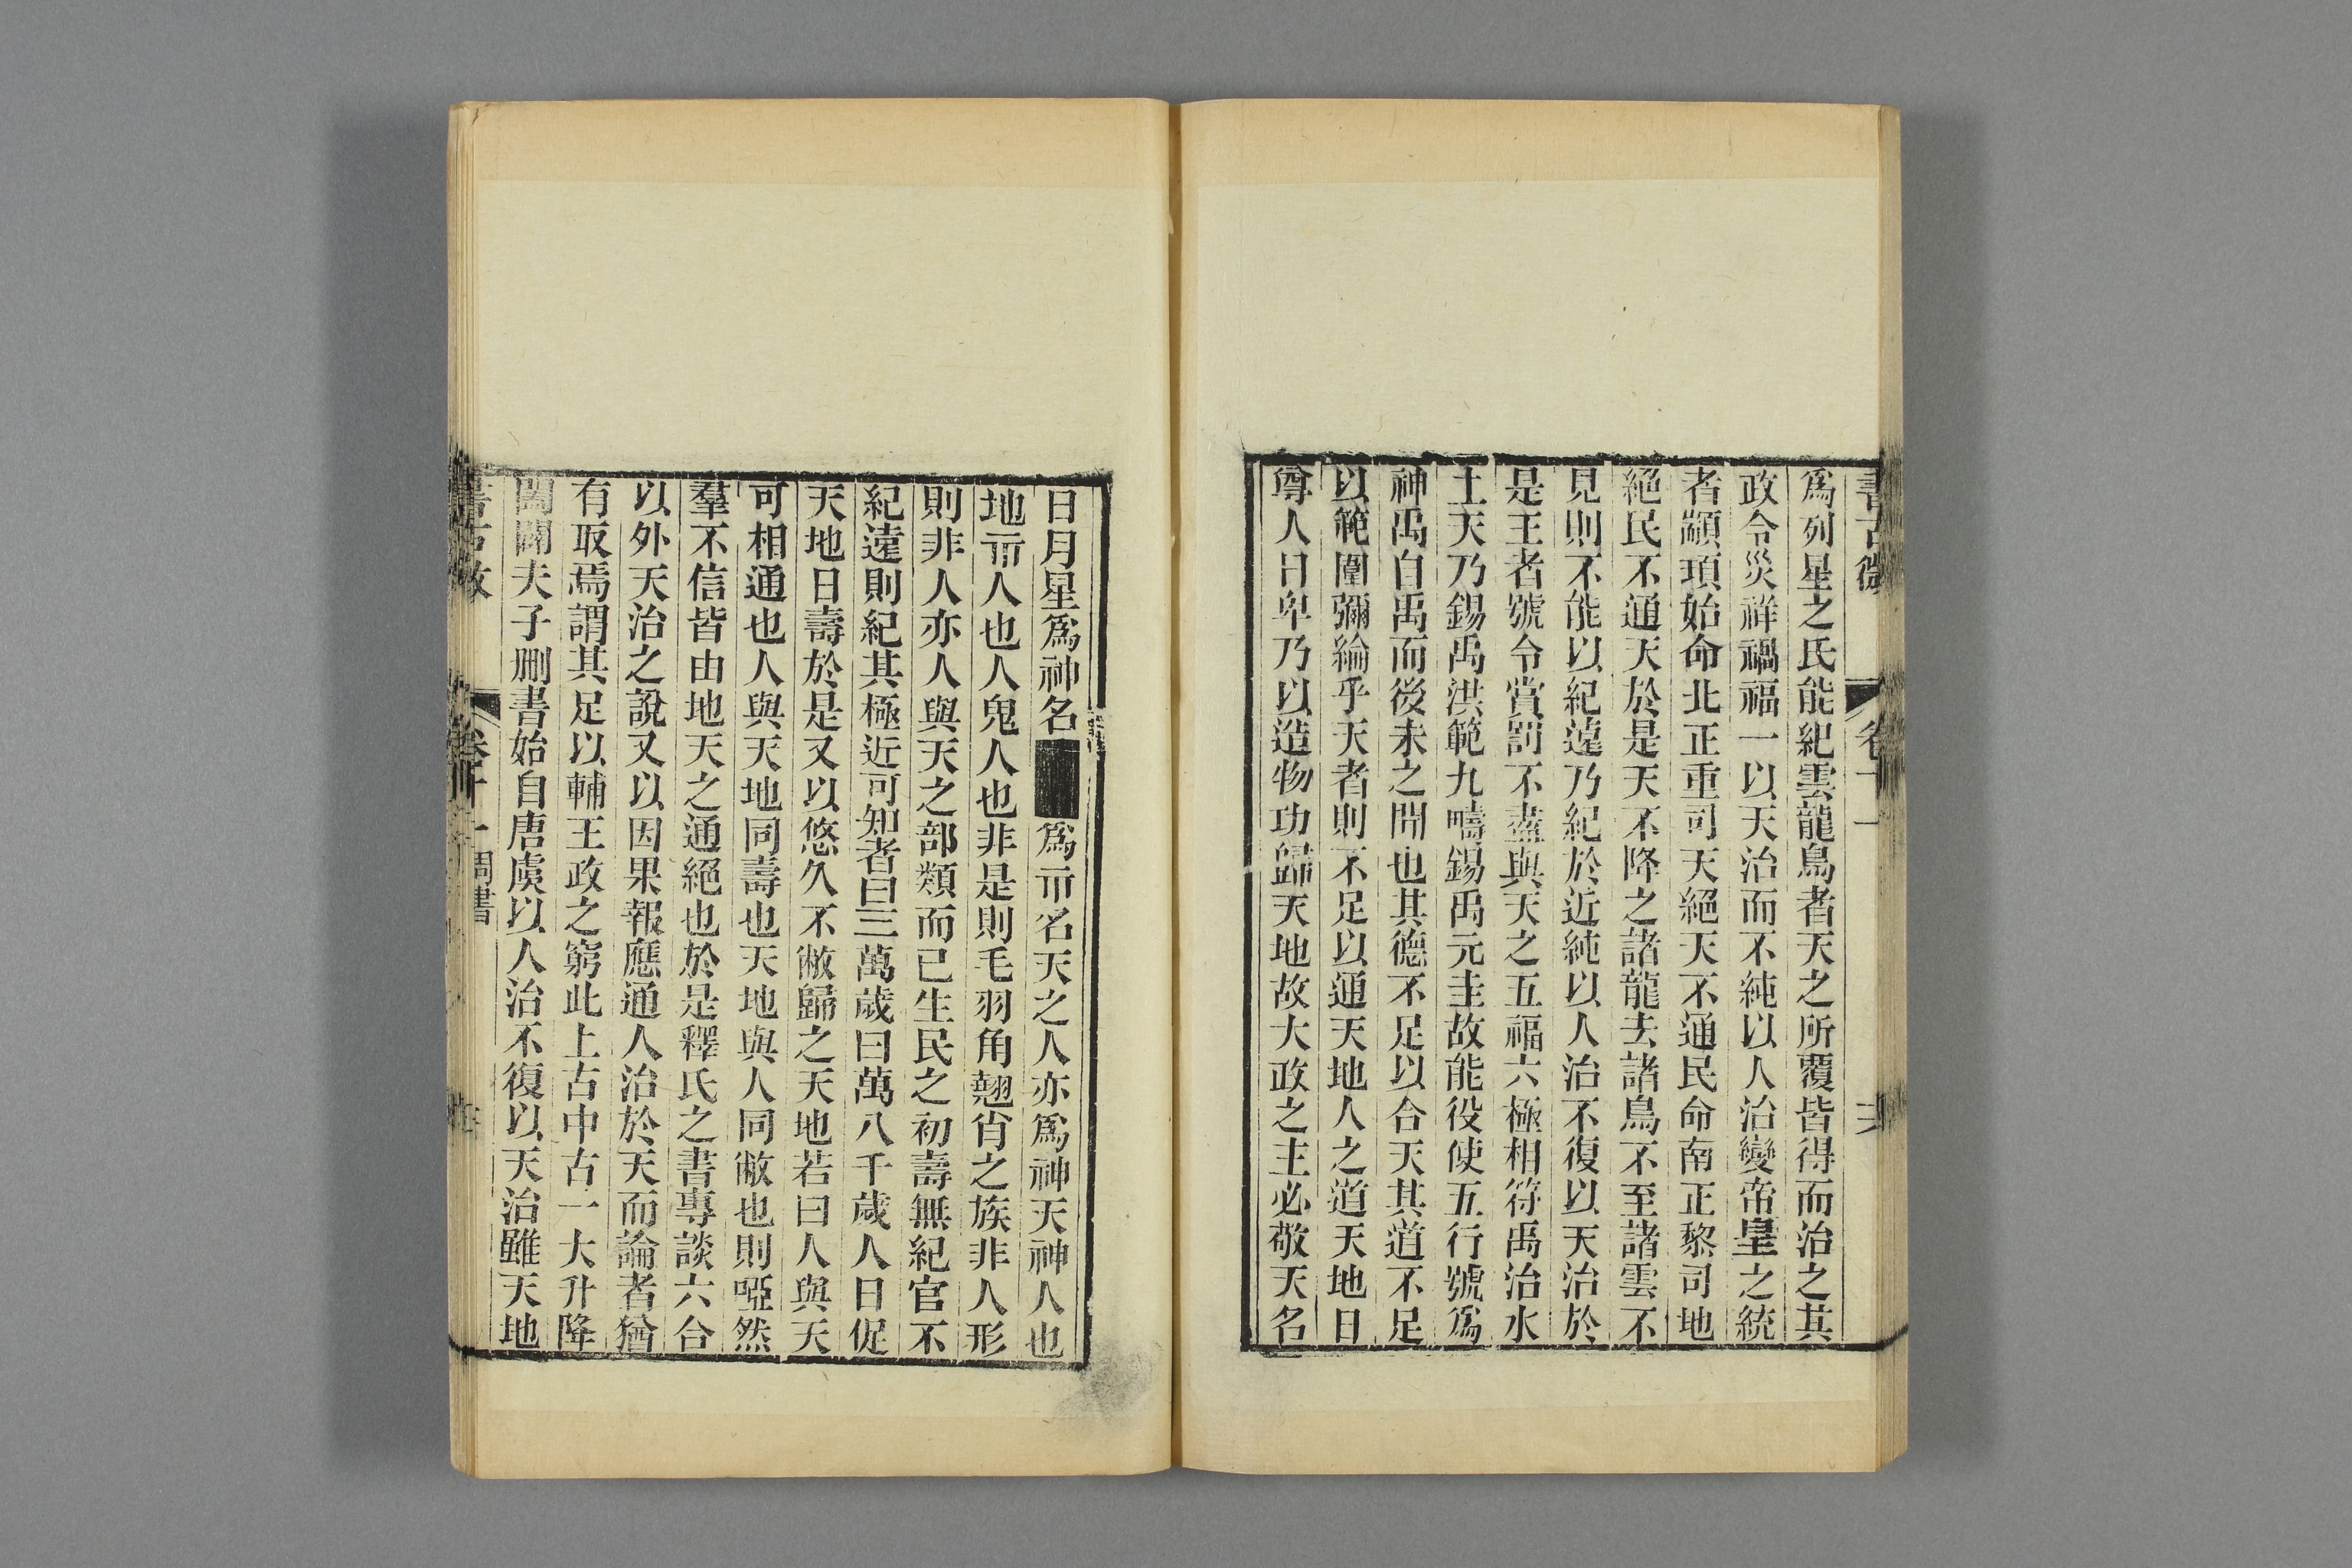 書古微 卷十一
爲列星之氏能紀雲龍鳥者天之所覆皆得而治之其
政令災祥禍福一以天治而不純以人治變帝皇之統
者顓頊始命北正重司天絕天不通民命南正黎司地
絕民不通天於是天不降之諸龍去諸鳥不至諸雲不
見則不能以紀遠乃紀於近純以人治不復以天治於
是王者號令賞罰不盡與天之五福六極相符禹治水
土天乃錫禹洪範九疇錫禹元圭故能役使五行號爲
神禹自禹而後未之聞也其德不足以合天其道不足
以範圍彌綸乎天者則不足以通天地人之道天地日
尊人日卑乃以造物功歸天地故大政之主必敬天名
日月星爲神名爲示名天之人亦爲神天神人也
地示人也人鬼人也非是則毛羽角翹肖之族非人形
則非人亦人與天之部類而已生民之初壽無紀官不
紀遠則紀其極近可知者曰三萬歲曰萬八千歲人日促
天地日壽於是又以悠久不敝歸之天地若曰人與天
可相通也人與天地同壽也天地與人同敝也則啞然
羣不信皆由地天之通絕也於是釋氏之書專談六合
以外天治之說又以因果報應通人治於天而論者猶
有取焉謂其足以輔王政之窮此上古中古一大升降
闔闢夫子删書始自唐虞以人治不復以天治雖天地
書古微 卷十一 周書